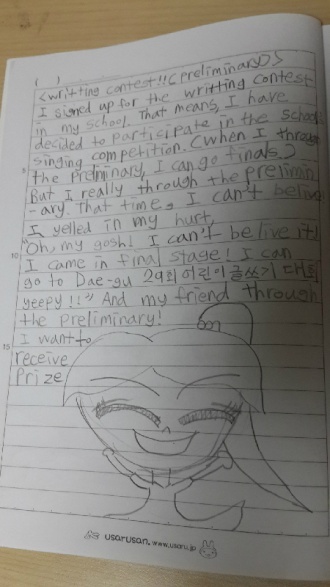 ( )
<writting contest!!(preliminary)>
I signed up for the writting contest
in my school. That means, I have
decided to participate in the school
singing competition. (when I through
the prelminary, I can go finals.)
But I really through the prelimin
-ary. That time, I can't belive
I yelled in my hurt,
"Oh, my gosh! I can't be live it!
I came in final stage! I can
go to Dae-gu 29회 어린이 글쓰기 대회
yeepy!!" And my friend through
the preliminary!
I want to
receive
prize
5
10
15
usarusan. www.usaru.jp